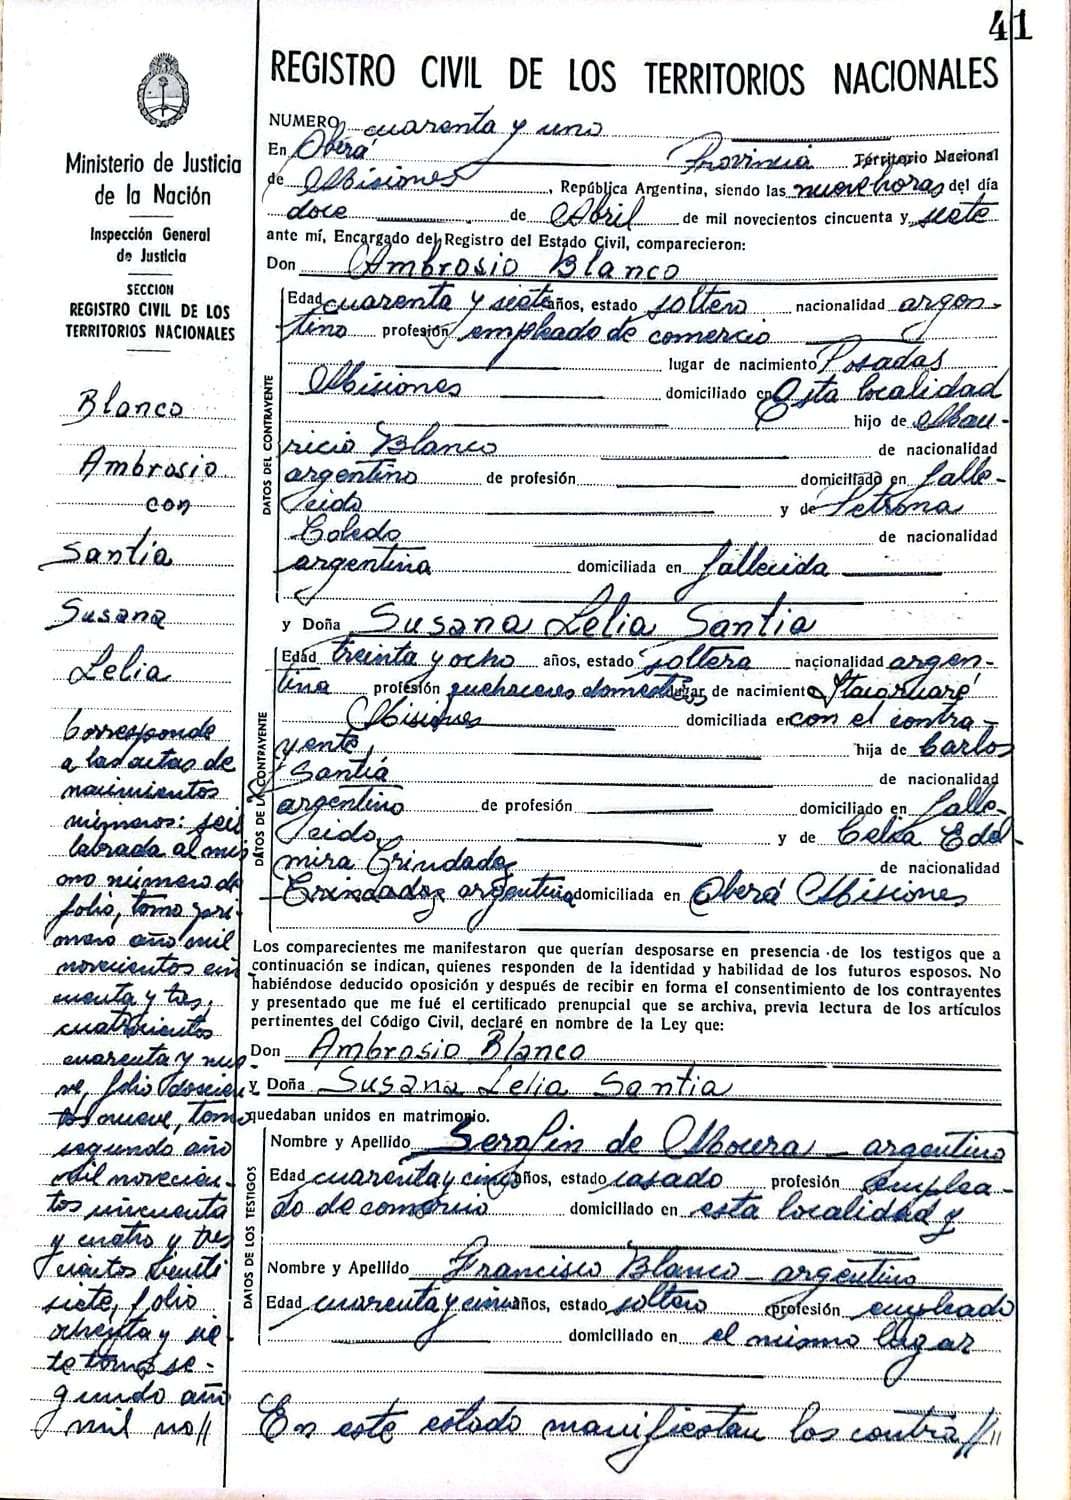 41
REGISTRO CIVIL DE LOS TERRITORIOS NACIONALES
Ministerio de Justicia
de la Nación
Inspección General
de Justicia
SECCION
REGISTRO CIVIL DE LOS
TERRITORIOS NACIONALES
Blanco
Ambrosio
con
Santía
Susana
Lelia
Corresponde
a las actas de
nacimientos
números: seis
labrada al mis
mo número de
folio, tomo pri-
mero año mil
novecientos cin
cuenta y tres,
cuatrocientos
cuarenta y nue-
ve, folio doscien
tos nueve, tomo
segundo año
mil novecien-
tos cincuenta
y cuatro y tres
cientos veinti
siete, folio
ochenta y sie-
te tomo se-
gundo año
mil no//
NUMERO cuarenta y uno
En Oberá Provincia Territorio Nacional
de Misiones, República Argentina, siendo las nueve horas del día
doce de Abril de mil novecientos cincuenta y siete
ante mí, Encargado del Registro del Estado Civil, comparecieron:
Don Ambrosio Blanco
DATOS DEL CONTRAYENTE
Edad cuarenta y siete años, estado soltero nacionalidad argen-
tino profesión empleado de comercio
lugar de nacimiento Posadas
Misiones domiciliado en Esta localidad
hijo de Mau-
ricio Blanco de nacionalidad
argentino de profesión domiciliado en falle-
cido y de Petrona
Toledo de nacionalidad
argentina domiciliada en fallecida
y Doña Susana Lelia Santia
DATOS DE LA CONTRAYENTE
Edad treinta y ocho años, estado soltera nacionalidad argen-
tina profesión quehaceres domésticos lugar de nacimiento Itacaruaré
Misiones domiciliada en con el contra-
yente, hija de Carlos
Santiá de nacionalidad
argentino de profesión domiciliado en falle-
cido, y de Celia Edel-
mira Trindadez de nacionalidad
Trindadez argentina domiciliada en Oberá Misiones
Los comparecientes me manifestaron que querían desposarse en presencia de los testigos que a
continuación se indican, quienes responden de la identidad y habilidad de los futuros esposos. No
habiéndose deducido oposición y después de recibir en forma el consentimiento de los contrayentes
y presentado que me fué el certificado prenupcial que se archiva, previa lectura de los artículos
pertinentes del Código Civil, declaré en nombre de la Ley que:
Don Ambrosio Blanco
y Doña Susana Lelia Santia
quedaban unidos en matrimonio.
DATOS DE LOS TESTIGOS
Nombre y Apellido Serafin de Moura argentino
Edad cuarenta y cinco años, estado casado profesión emplea-
do de comercio domiciliado en esta localidad y
Nombre y Apellido Francisco Blanco argentino
Edad cuarenta y cinco años, estado soltero profesión empleado
domiciliado en el mismo lugar
En este estado manifiestan los contra//